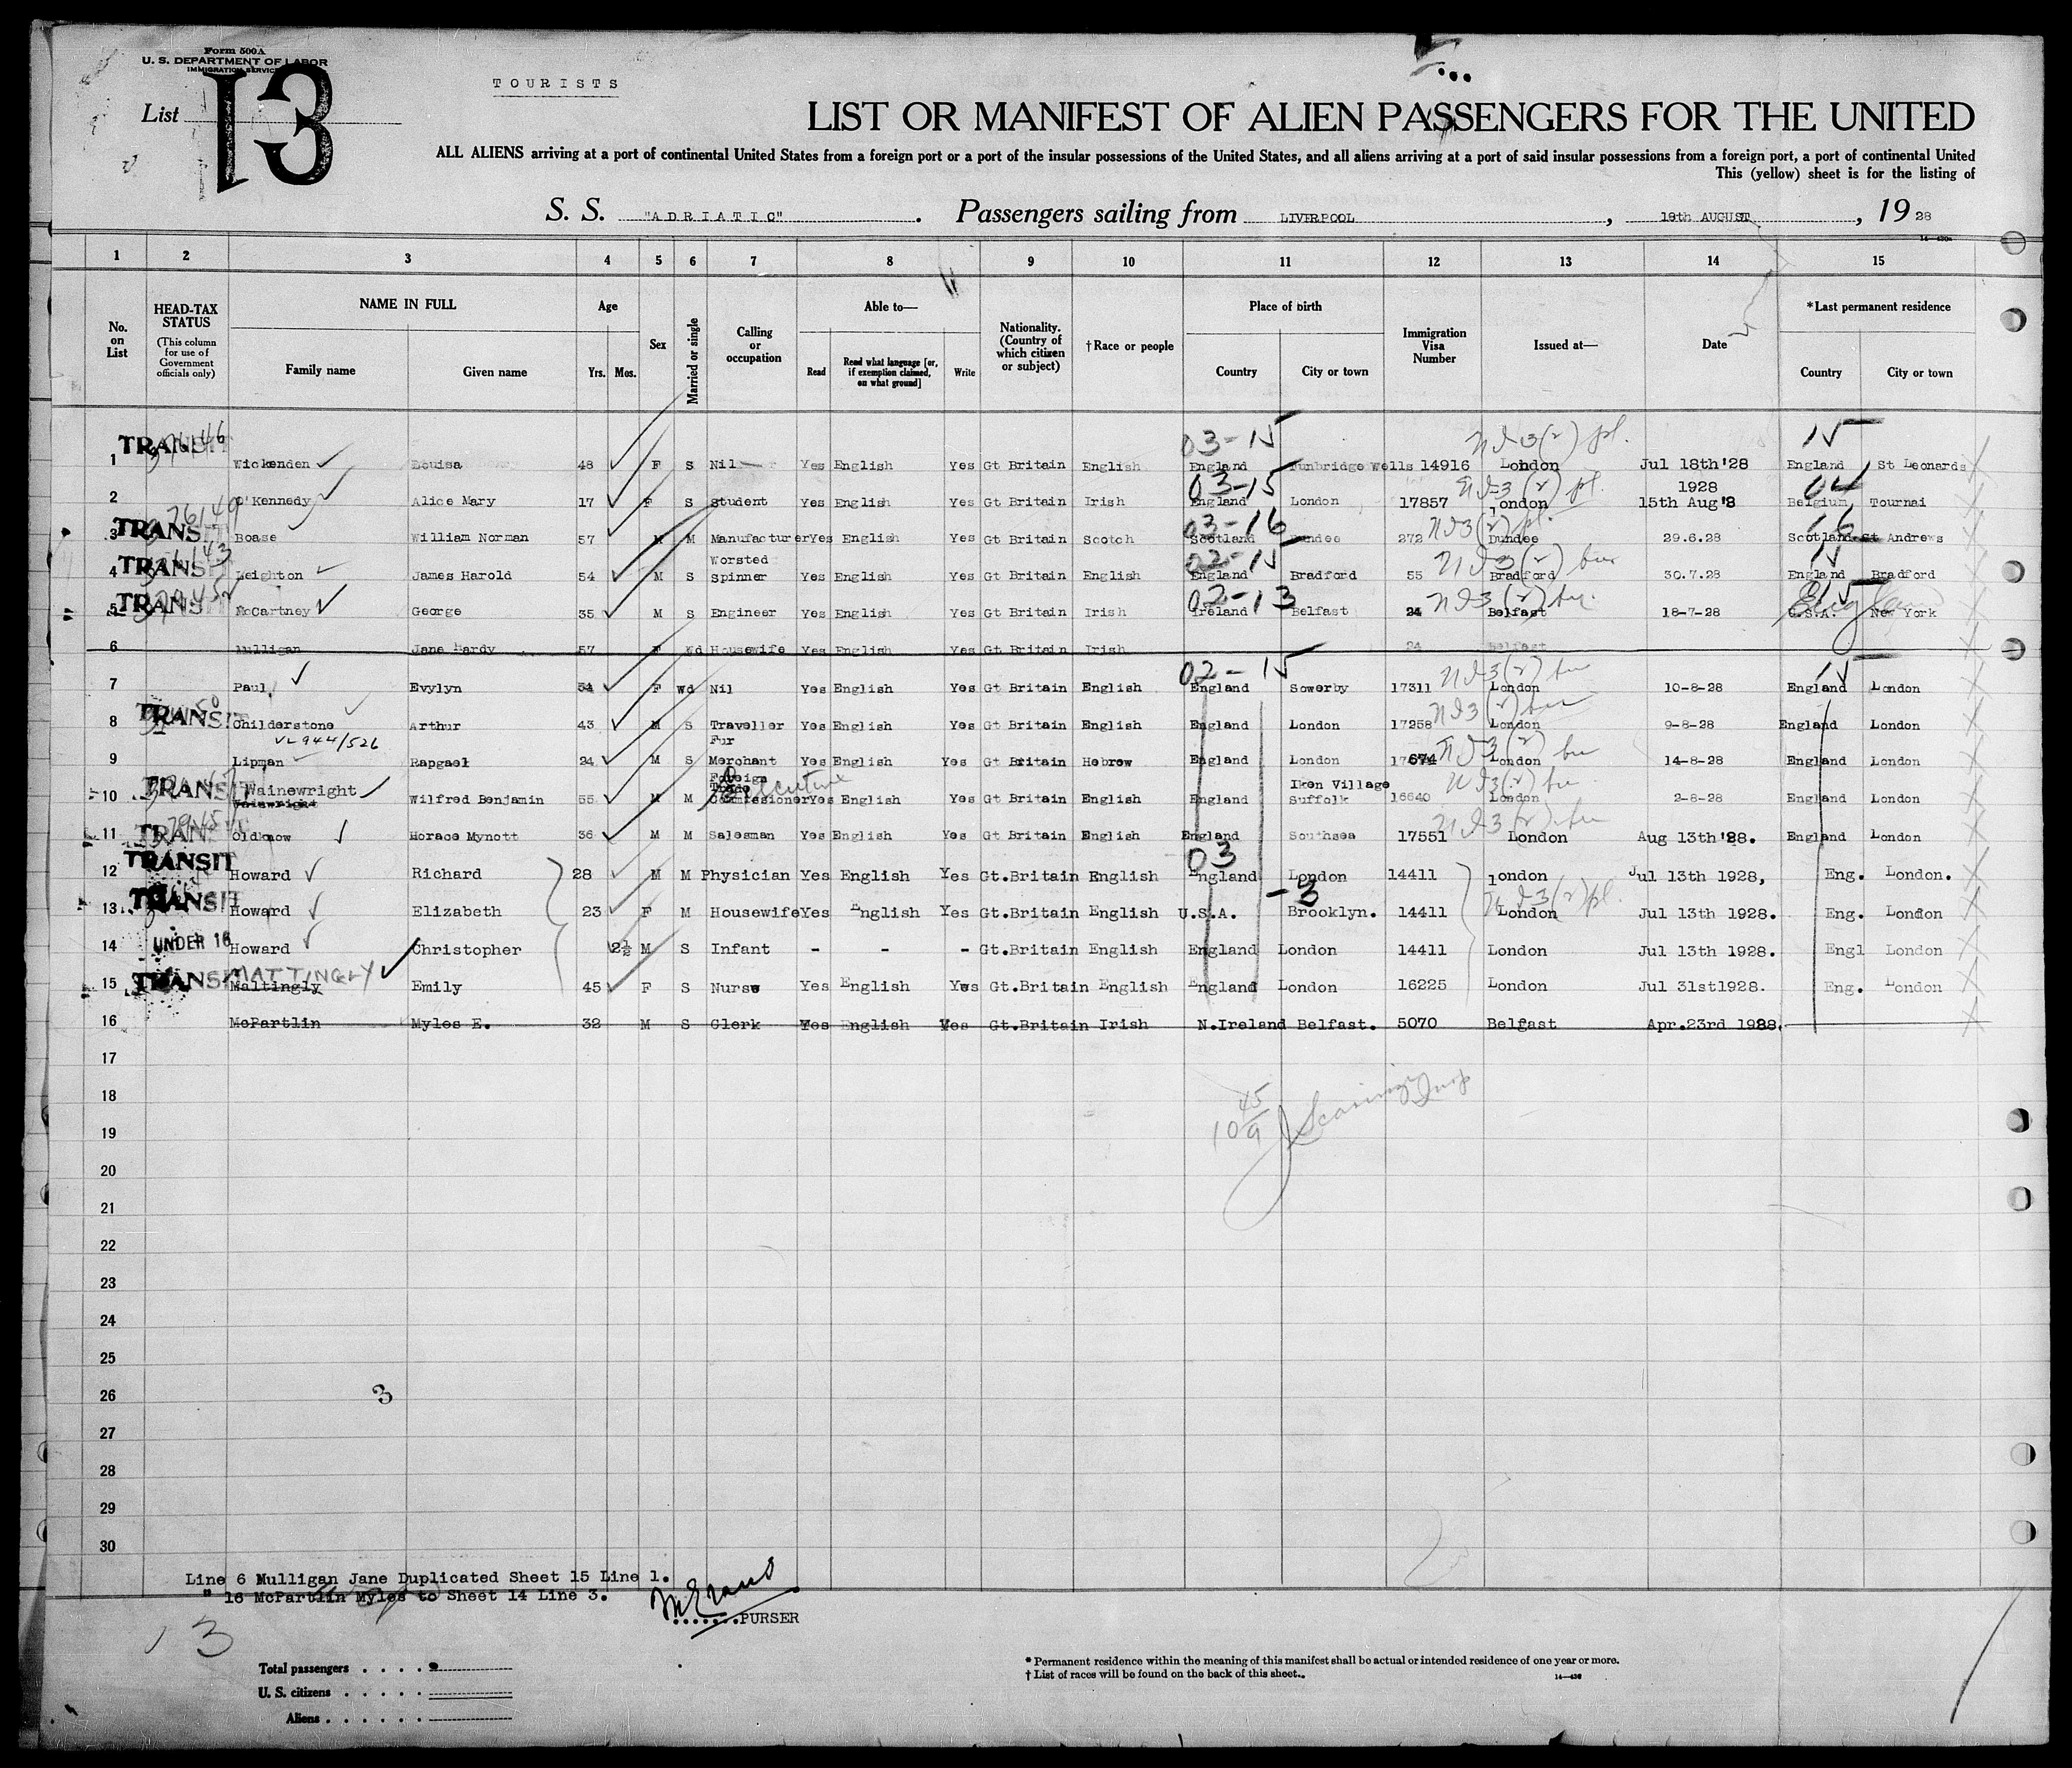 Form 500A
U. S. DEPARTMENT OF LABOR
IMMIGRATION SERVICE
TOURISTS
List 13
LIST OR MANIFEST OF ALIEN PASSENGERS FOR THE UNITED
ALL ALIENS arriving at a port of continental United States from a foreign port or a port of the insular possessions of the United States, and all aliens arriving at a port of said insular possessions from a foreign port, a port of continental United
This (yellow) sheet is for the listing of
S. S. "ADRIATIC". Passengers sailing from LIVERPOOL, 18th AUGUST, 1928
1 2 3 4 5 6 7 8 9 10 11 12 13 14 15
No. on List
HEAD-TAX STATUS
(This column for use of Government officials only)
NAME IN FULL
Family name Given name
Age
Yrs. Mos.
Sex
Married or single
Calling or occupation
Able to—
Read Read what language [or, if exemption claimed, on what ground] Write
Nationality. (Country of which citizen or subject)
†Race or people
Place of birth
Country City or town
Immigration Visa Number
Issued at—
Date
*Last permanent residence
Country City or town
03-15 15
TRANSIT 1 Wickenden Louisa 48 F S Nil Yes English Yes Gt Britain English England Tunbridge Wells 14916 London Jul 18th '28 England St Leonards
03-15 1928
2 O'Kennedy Alice Mary 17 F S Student Yes English Yes Gt Britain Irish England London 17857 London 15th Aug '8 Belgium Tournai
03-16 16
TRANSIT 3 Boase William Norman 57 M M Manufacturer Yes English Yes Gt Britain Scotch Scotland Dundee 272 Dundee 29.6.28 Scotland St Andrews
02-15 15
TRANSIT 4 Leighton James Harold 54 M S Worsted spinner Yes English Yes Gt Britain English England Bradford 55 Bradford 30.7.28 England Bradford
02-13 15
TRANSIT 5 McCartney George 35 M S Engineer Yes English Yes Gt Britain Irish Ireland Belfast 24 Belfast 18-7-28 U.S.A. New York
6 Mulligan Jane Hardy 57 F Wd Housewife Yes English Yes Gt Britain Irish 24 Belfast
02-15 15
7 Paul Evylyn 54 F Wd Nil Yes English Yes Gt Britain English England Sowerby 17311 London 10-8-28 England London
TRANSIT 8 Childerstone Arthur 43 M S Traveller Yes English Yes Gt Britain English England London 17258 London 9-8-28 England London
VL 944/526
9 Lipman Rapgael 24 M S Fur Merchant Yes English Yes Gt Britain Hebrew England London 674 London 14-8-28 England London
TRANSIT 10 Wainewright Wilfred Benjamin 55 M M Foreign Trade Commissioner Executive Yes English Yes Gt Britain English England Iken Village Suffolk 16640 London 2-8-28 England London
TRANSIT 11 Oldknow Horace Mynott 36 M M Salesman Yes English Yes Gt Britain English England Southsea 17551 London Aug 13th '28. England London
03
TRANSIT 12 Howard Richard 28 M M Physician Yes English Yes Gt.Britain English England London 14411 London Jul 13th 1928, Eng. London.
-3
TRANSIT 13 Howard Elizabeth 23 F M Housewife Yes English Yes Gt.Britain English U.S.A. Brooklyn. 14411 London Jul 13th 1928. Eng. London
UNDER 16 14 Howard Christopher 2½ M S Infant - - - Gt.Britain English England London 14411 London Jul 13th 1928. Engl London
MATTINGLY
TRANSIT 15 Maltingly Emily 45 F S Nurse Yes English Yes Gt.Britain English England London 16225 London Jul 31st1928. Eng. London
16 McPartlin Myles E. 32 M S Clerk Yes English Yes Gt.Britain Irish N.Ireland Belfast. 5070 Belfast Apr.23rd 1928.
17
18
19
20
21
22
23
24
25
26
3
27
28
29
30
Line 6 Mulligan Jane Duplicated Sheet 15 Line 1.
" 16 McPartlin Myles to Sheet 14 Line 3.
.......PURSER
13
Total passengers . . . .
U. S. citizens . . . . .
Aliens . . . . . .
* Permanent residence within the meaning of this manifest shall be actual or intended residence of one year or more.
† List of races will be found on the back of this sheet.